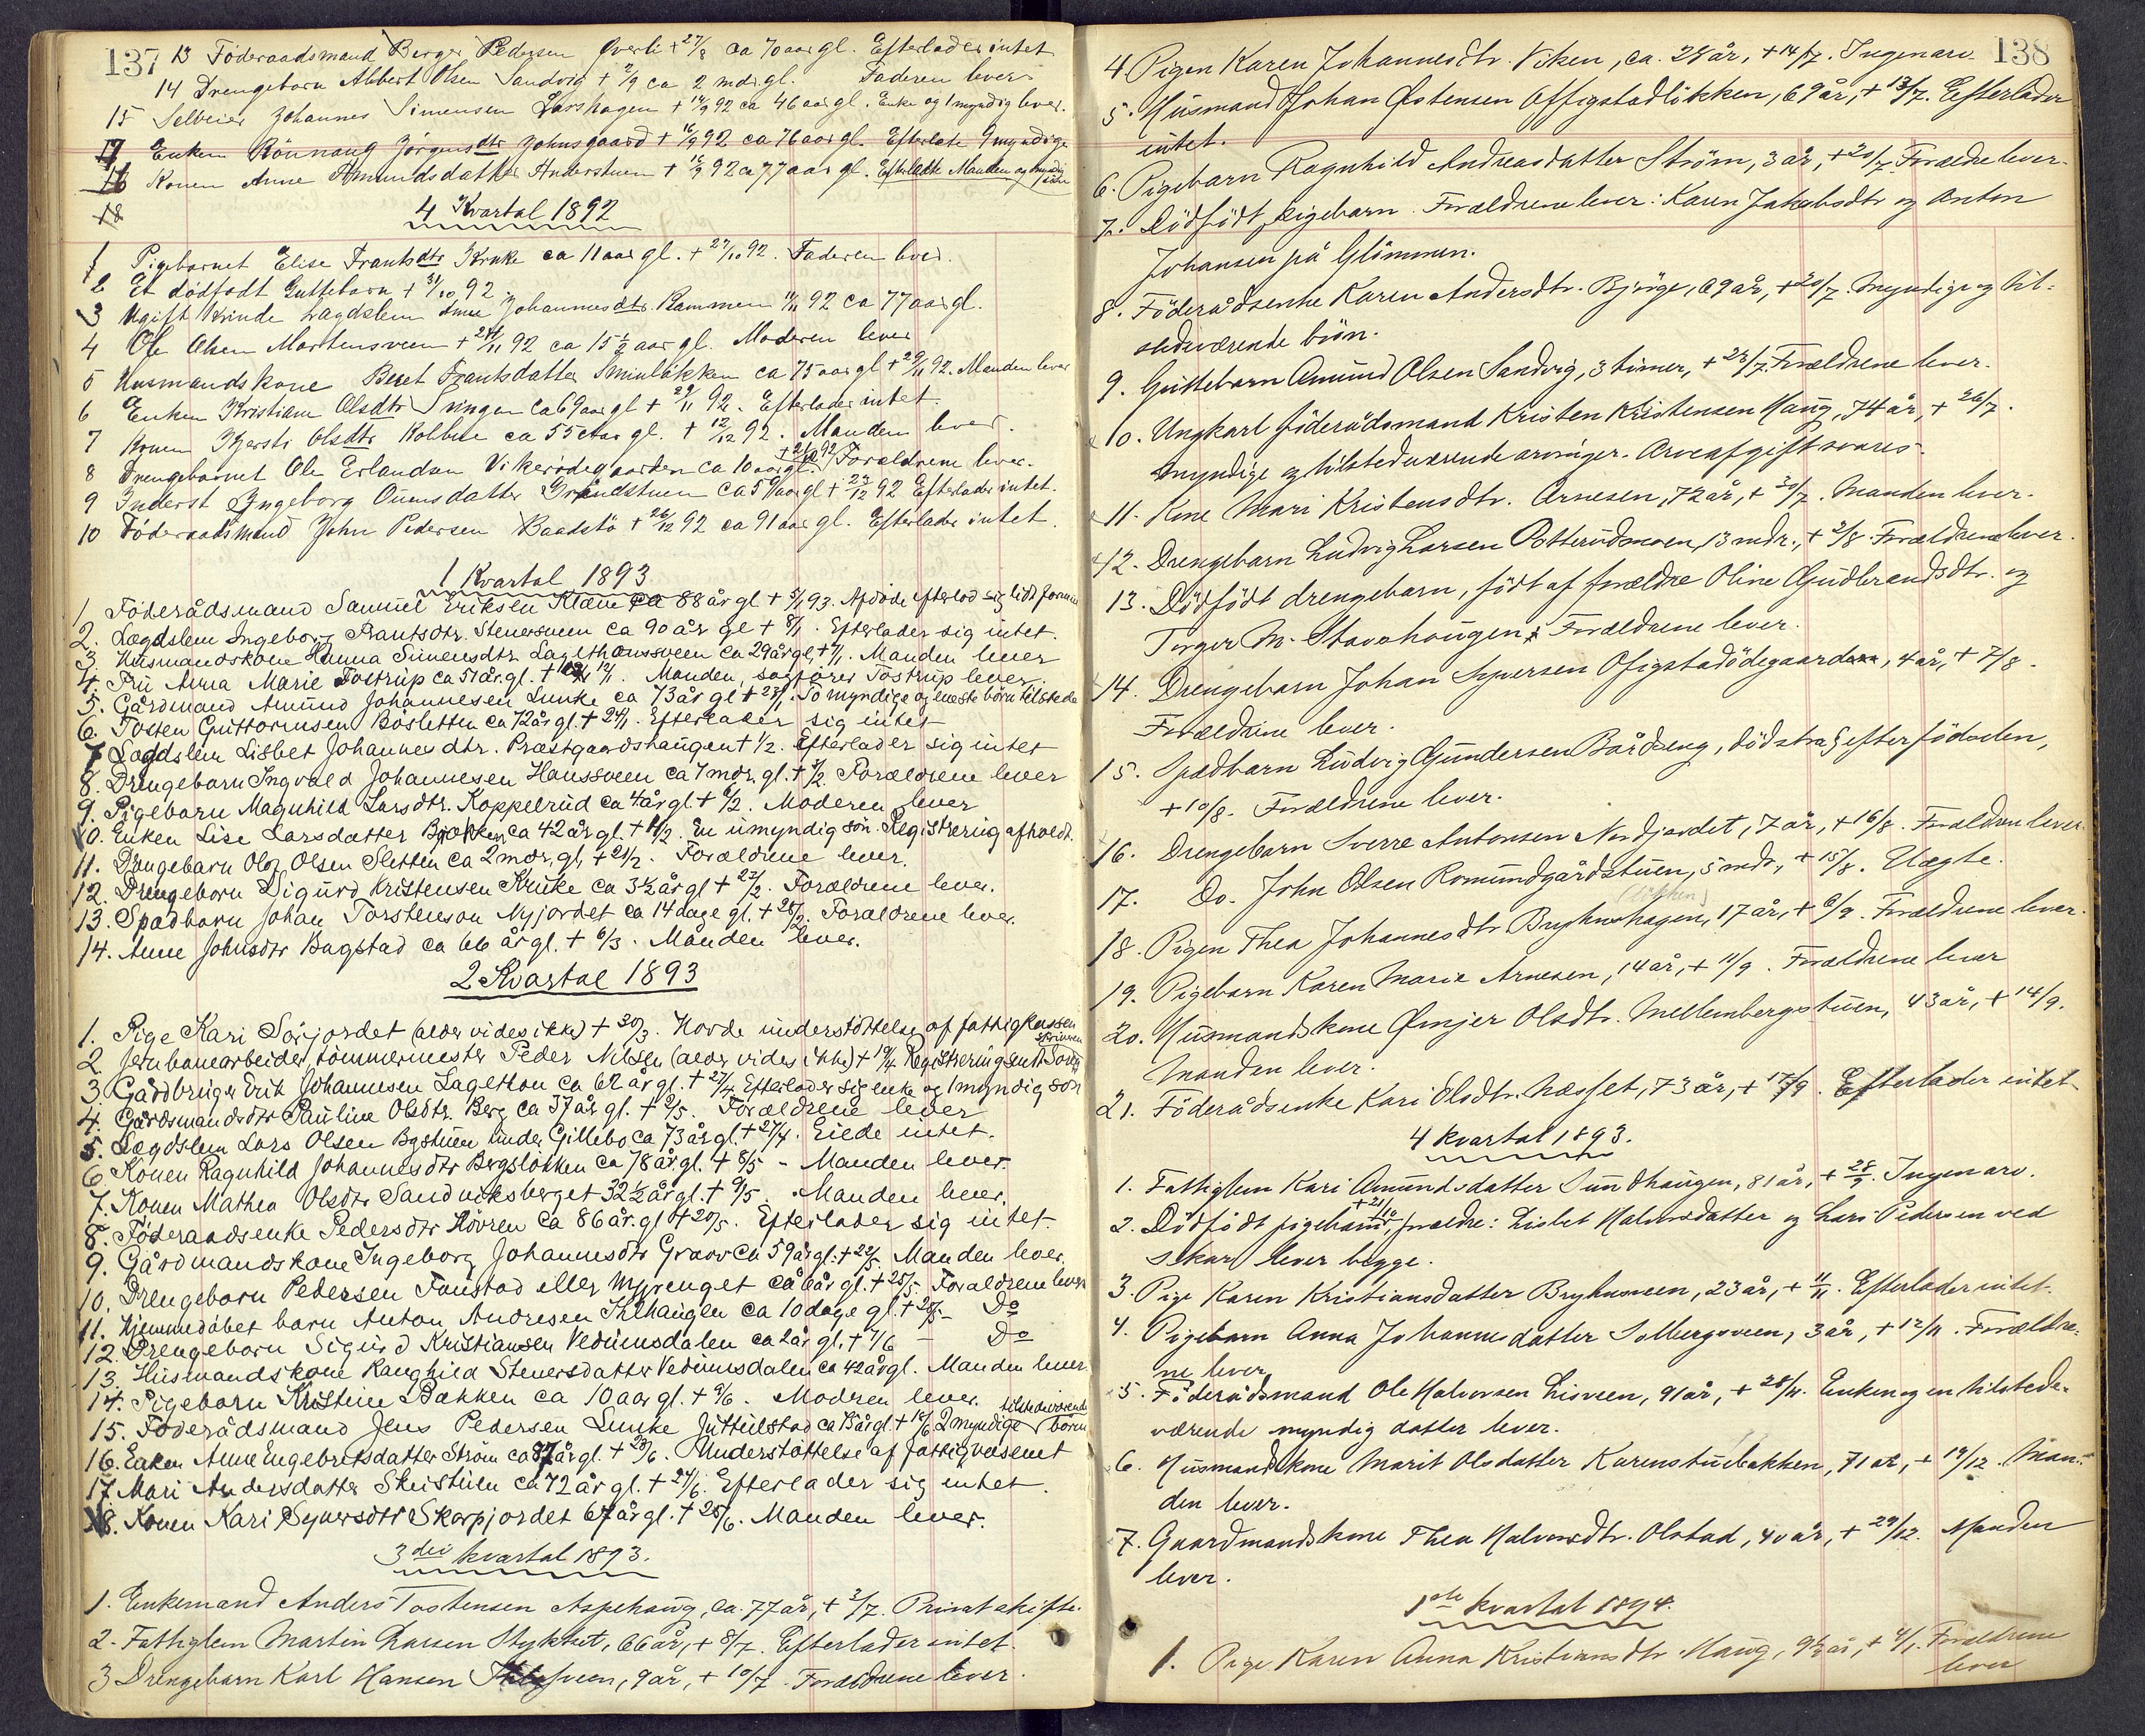 137
13 Föderaadsmand Berger Pedersen Överli + 27/8 ca 70 aar gl. Efterlader intet
14 Drengebarn Albert Olsen Sandvig + 2/9 ca 2 mdr gl. Faderen lever
15 Selveier Johannes Simensen Larshagen + 14/9 92 ca 46 aar gl. Enke og 1 myndig lever.
17 Enken Rönnaug Jörgensdtr Johnsgaard + 16/9 92 ca 76 aar gl. Efterlate 9 myndige
16 Konen Anne Amundsdatter Anderstuen + 12/9 92 ca 77 aar gl. Efterlatte Manden og myndig
18
4 Kvartal 1892
1 Pigebarnet Elise Frantsdtr Kruke ca 11 aar gl. + 27/10 92. Faderen lever.
2 Et dödfödt Guttebarn + 31/10 92
3 Ugift Kvinde Lægdslem Anne Johannesdtr Rammen 11/11 92 ca 77 aar gl.
4 Ole Olsen Mortensveen + 24/11 92 ca 15 1/2 aar gl. Moderen lever
5 Husmandskone Beret Frantsdatter Sminløkken ca 75 aar gl + 29/11 92. Manden lever
6 Enken Kristian Olsdtr Svingen ca 69 aar gl + 29/11 92. Efterlader intet.
7 Konen Kjersti Olsdtr Kolbue ca 55 aar gl. + 12/12 92. Manden lever.
8 Drengebarnet Ole Erlandsen Vikerödegaarden ca 10 aar gl. + 21/12 92 Forældrene lever.
9 Inderst Ingeborg Ouensdatter Grandstuen ca 59 aar gl + 23/12 92 Efterlader intet.
10 Föderaadsmand John Pedersen Baadstö + 26/12 92 ca 91 aar gl. Efterlader intet.
1 Kvartal 1893
1. Föderådsmand Samuel Eriksen Klæva ca 88 år gl + 5/1 93. Afdöde efterlod sig lidt formue
2. Lægdslem Ingeborg Frantsdtr. Stenersveen ca 90 år gl + 8/1. Efterlader sig intet.
3. Husmandskone Hanna Simensdtr Lagethonssveen ca 29 år gl, + 9/1. Manden lever
4. Fru Anna Marie Tostrup ca 51 år gl. + 12/1. Manden, sagförer Tostrup lever.
5. Gårdmand Amund Johannesen Lunke ca 73 år gl + 23/1. To myndige og eneste börn tilstede
6. Tosten Guttormsen Bösletten ca 72 år gl. + 24/1. Efterlader sig intet
7 Lægdslem Lisbet Johannesdtr. Præstgaardshaugen + 1/2. Efterlader sig intet
8. Drengebarn Ingvald Johannesen Hanssveen ca 7 mdr. gl. + 3/2 Forældrene lever
9. Pigebarn Magnhild Larsdtr. Koppelrud ca 4 år gl + 6/2. Moderen lever
10. Enken Lise Larsdatter Bjørken ca 42 år gl. + 11/2. En umyndig sön. Registrering afholdt.
11. Drengebarn Olaf Olsen Sletten ca 2 mdr, gl, + 21/2. Forældrene lever.
12. Drengebarn Sigurd Kristensen Kruke ca 3 1/2 år gl + 23/2. Forældrene lever.
13. Spædbarn Johan Torstenson Nyjordet ca 14 dage gl. + 28/2. Forældrene lever.
14. Anne Johnsdtr Bagstad ca 66 år gl. + 6/3. Manden lever.
2 Kvartal 1893
1. Pige Kari Sörjordet (alder vides ikke) + 30/3. Havde understöttelse af fattigkassen
2. Jernbanearbeider, tömmermester Peder Nilsen (alder vides ikke) + 19/4 Registrering
3. Gårdbruger Erik Johannesen Lagethon ca 62 år gl. + 27/4 Efterlader sig enke og 1 myndig sön
4. Gårdsmandsdtr Pauline Olsdtr. Berg ca 37 år gl. + 2/5. Forældrene lever
5. Lægdslem Lars Olsen Bystuen under Gillebo ca 73 år gl. + 27/4. Eiede intet.
6. Konen Ragnhild Johannesdtr Bergsløkken ca 78 år gl. + 8/5 - Manden lever.
7. Konen Mathea Olsdtr Sandviksberget 32 1/2 år gl. + 9/5. Manden lever.
8. Föderaadsenke Pedersdtr Hövren ca 86 år gl + 20/5. Efterlader sig intet.
9. Gårdmandskone Ingeborg Johannesdtr Graav ca 59 år gl. + 22/5 Manden lever.
10. Drengebarn Pedersen Faustad eller Myrenget ca 6 år gl. + 25/5. Forældrene lever
11. Hjemmedöbet barn Anton Andresen Skihaugen ca 10 dage gl. + 25/5 - Do
12. Drengebarn Sigurd Kristiansen Vedumsdalen ca 2 år gl, + 7/6 - Do
13. Husmandskone Ranghild Stenersdatter Vedumsdalen ca 42 år gl. Manden lever.
14. Pigebarn Kristine Bakken ca 10 aar gl. + 9/6. Modren lever.
tilstedeværende
15. Föderådsmand Jens Pedersen Lunke Jutulstad ca 73 år gl. + 18/6 2 myndige börn
16. Enken Anne Engebretsdatter Ström ca 87 år gl. + 20/6. Understöttelse af fattigvæsenet
17. Mari Andersdatter Skeistulen ca 72 år gl. + 24/6. Efterlader sig intet.
18. Konen Kari Syversdtr Skarpjordet 67 år gl. + 25/6. Manden lever.
3die kvartal 1893.
1. Enkemand Anders Tostensen Aspehaug, ca. 77 år, + 2/7. Privat skifte.
2. Fattiglem Martin Larsen Stykket, 66 år, + 8/7. Efterlader intet.
3 Drengebarn Karl Hansen, 9 år, + 10/7. Forældrene lever.
138
4 Pigen Karen Johannesdtr. Viken, ca. 24 år, + 14/7. Ingen arv.
5. Husmand Johan Østensen Offigstadløkken, 69 år, + 13/7. Efterlader
intet.
6. Pigebarn Ragnhild Andreasdatter Ström, 3 år, + 20/7. Forældre lever.
7. Dödfödt pigebarn. Forældrene lever: Karen Jakobsdtr og Anton
Johansen på Glömmen.
8. Föderådsenke Karen Andersdtr. Bjørge, 69 år, + 20/7. Myndige og til-
stedeværende börn.
9. Guttebarn Amund Olsen Sandvig, 3 timer, + 23/7. Forældrene lever.
10. Ungkarl föderådsmand Kristen Kristensen Haug, 74 år, + 26/7.
Myndige og tilstedeværende arvinger. Arveafgift svares.
11. Kone Mari Kristensdtr. Arnesen, 72 år, + 30/7. Manden lever.
12. Drengebarn Ludvig Larsen Potterudmoen, 13 mdr., + 2/8. Forældrene lever.
13. Dödfödt drengebarn, födt af forældre Oline Gudbrandsdtr. og
Torger M. Stavehaugen; Forældrene lever.
14. Drengebarn Johan Syversen Ofigstadödegaard, 4 år, + 7/8.
Forældrene lever.
15. Spædbarn Ludvig Gundersen Bårdseng, död strax efter födselen,
+ 10/8. Forældrene lever.
16. Drengebarn Sverre Antonsen Nordjordet, 7 år, + 16/8. Forældrene lever.
17. Do. John Olsen Romundgårdstuen, 5 mdr., + 15/8. Uægte.
18. Pigen Thea Johannesdtr Bryhnshagen, 17 år, + 6/9. Forældrene lever.
19. Pigebarn Karen Marie Arnesen, 14 år, + 11/9. Forældrene lever
20. Husmandskone Ømjer Olsdtr. Mellembergstuen, 43 år, + 14/9.
Manden lever.
21. Föderådsenke Kari Olsdtr. Næsset, 73 år, + 17/9. Efterlader intet
4 kvartal 1893.
1. Fattiglem Kari Amundsdatter Sundhaugen, 81 år, + 28/9. Ingen arv.
2. Dödfödt pigebarn + 21/10, forældre: Lisbet Halvorsdatter og Lars Pedersen ved
Skar, lever begge.
3. Pige Karen Kristiansdatter Bryhnsveen, 23 år, + 11/11. Efterlader intet.
4. Pigebarn Anna Johannesdatter Solbergsveen, 3 år, + 12/11. Forældre-
ne lever
5. Föderådsmand Ole Halvorsen Lisveen, 91 år, + 28/11. Enken og en tilstede-
værende myndig datter lever.
6. Husmandskone Marit Olsdatter Karenstuebakken, 71 år, + 19/12. Man-
den lever.
7. Gaardmandskone Thea Halvorsdtr. Olstad, 40 år, + 29/12. Manden
lever.
1ste kvartal 1894.
1. Pige Karen Anna Kristiansdtr. Haug, 9 1/2 år, + 4/1. Forældrene
lever